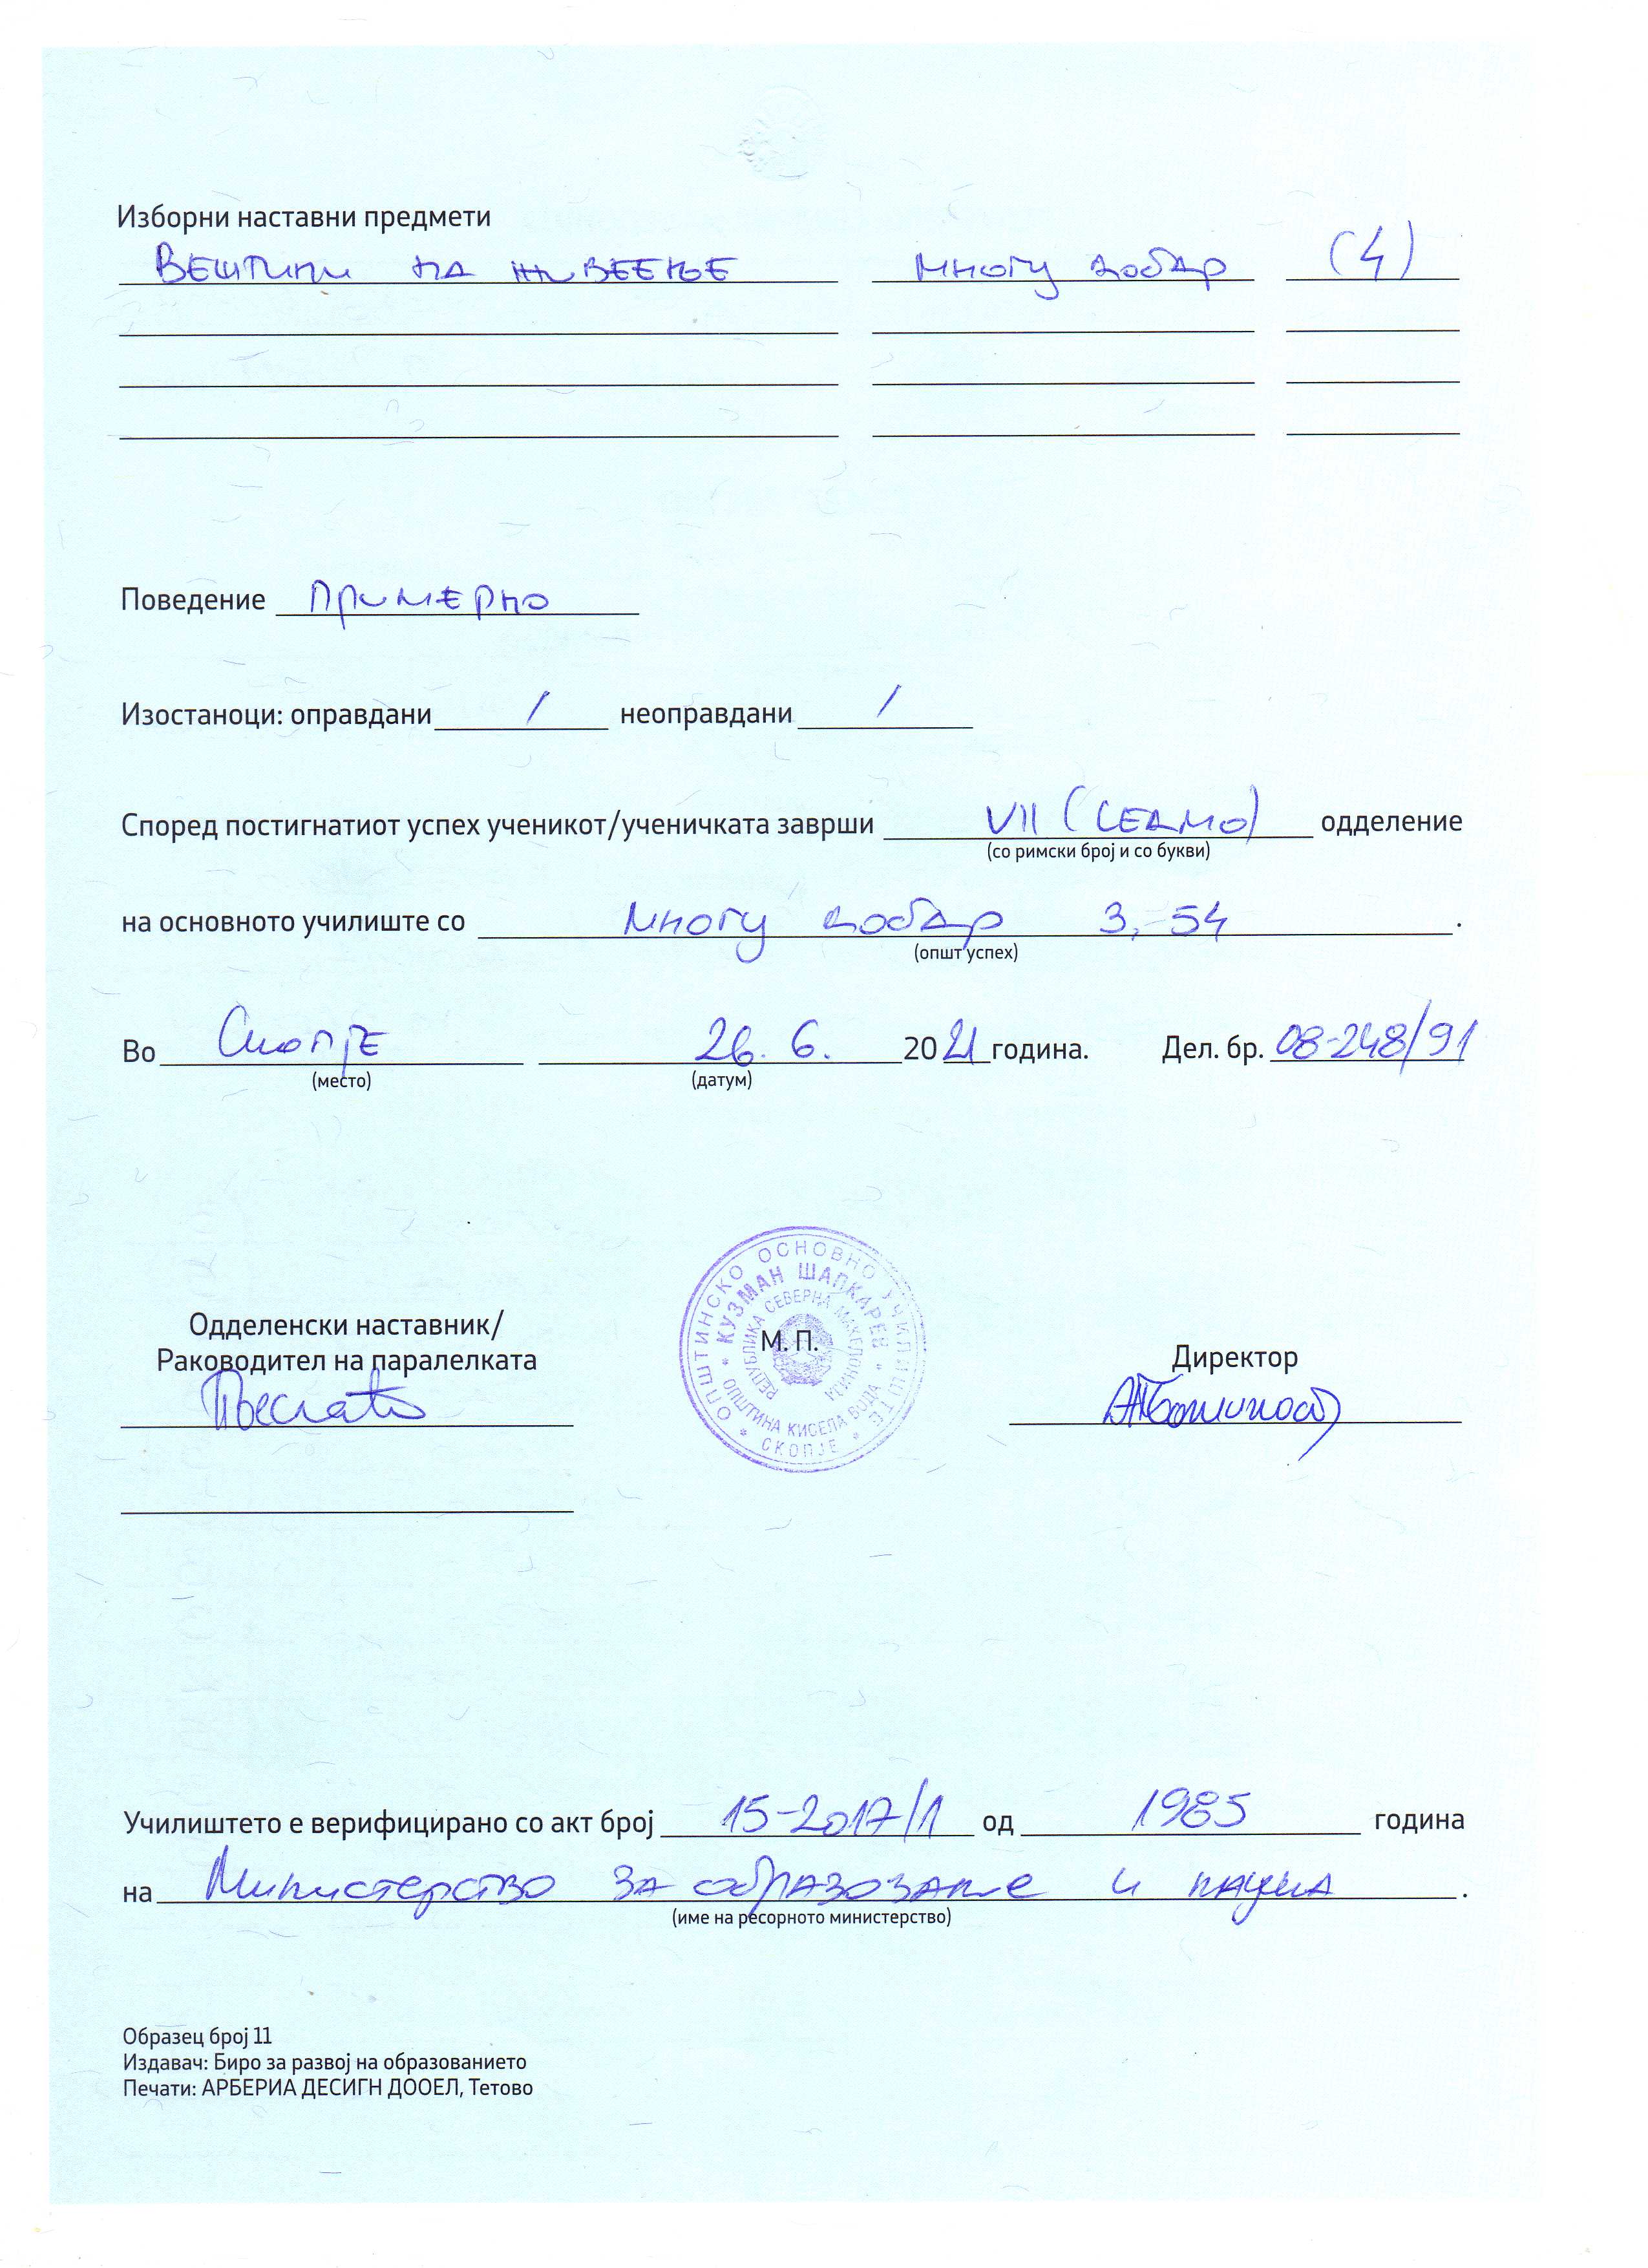 Изборни наставни предмети
Вештини на живеење многу добар (4)
Поведение Примерно
Изостаноци: оправдани / неоправдани /
Според постигнатиот успех ученикот/ученичката заврши VII (седмо) одделение
(со римски број и со букви)
на основното училиште со многу добар 3,54.
(општ успех)
Во Скопје 26. 6. 2021 година. Дел. бр. 08-248/91
(место) (датум)
ОПШТИНСКО ОСНОВНО УЧИЛИШТЕ
"КУЗМАН ШАПКАРЕВ"
РЕПУБЛИКА СЕВЕРНА МАКЕДОНИЈА
ОПШТИНА КИСЕЛА ВОДА
* СКОПЈЕ *
Одделенски наставник/
Раководител на паралелката
М. П.
Директор
Училиштето е верифицирано со акт број 15-2017/1 од 1985 година
на Министерство за образование и наука.
(име на ресорното министерство)
Образец број 11
Издавач: Биро за развој на образованието
Печати: АРБЕРИА ДЕСИГН ДООЕЛ, Тетово